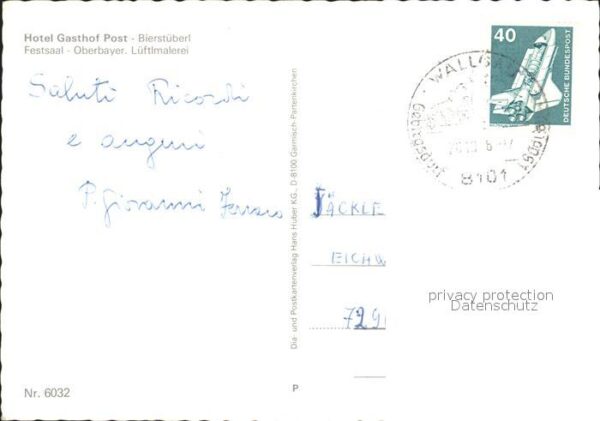 Hotel Gasthof Post - Bierstüberl
Festsaal - Oberbayer. Lüftlmalerei
Saluti Ricordi
e auguri
P. Giovanni Ferraro
Nr. 6032
Dia- und Postkartenverlag Hans Huber KG., D-8100 Garmisch-Partenkirchen
P
40
DEUTSCHE BUNDESPOST
WALLGAU
8101
JÄCKLE
EICHW
729
privacy protection
Datenschutz